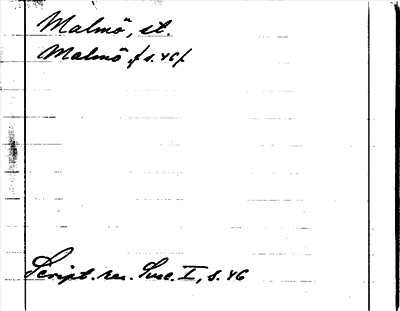 Malmö, st.
Malmö /s. 46/
Script. rer. Svec. I, s. 46